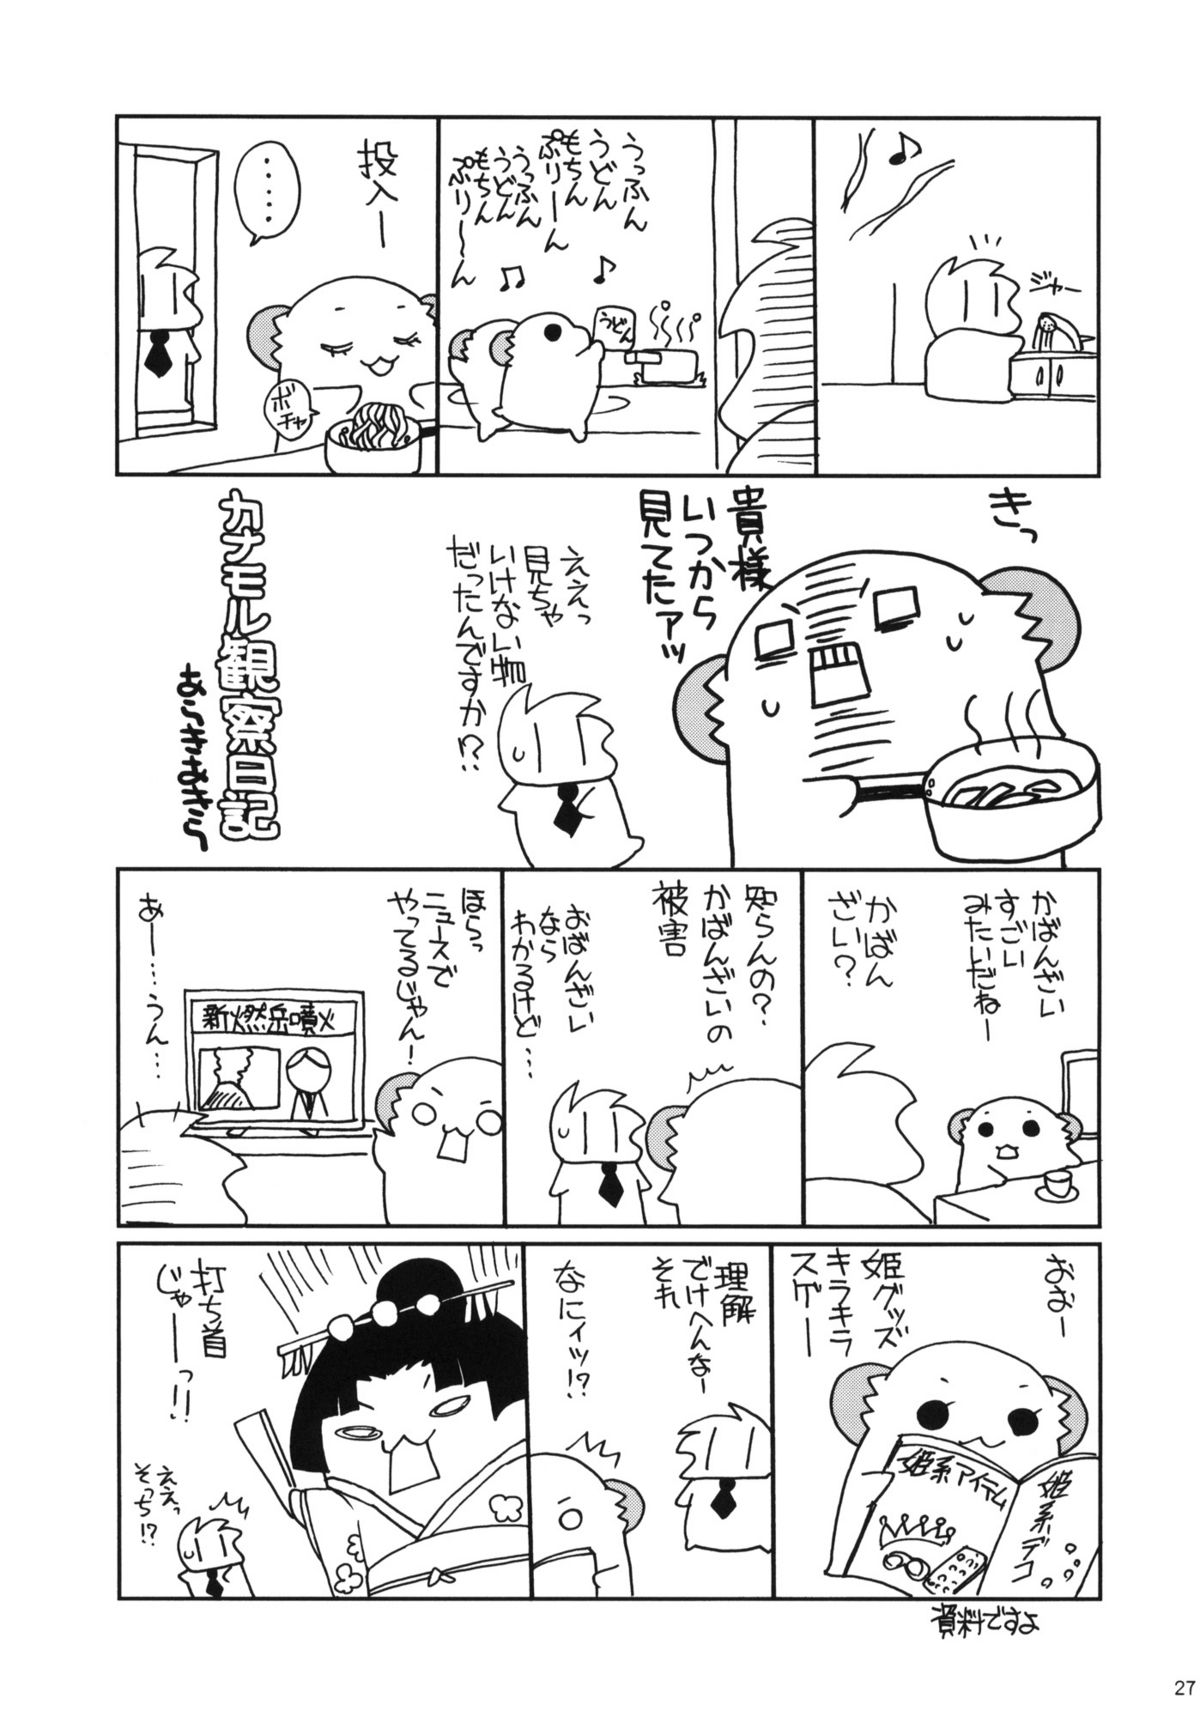 ジャー
うっふん
うどん
もちん
ぷりーーん
うっふん
うどん
もちん
ぷり〜〜ん
うどん
投入ー
‥‥‥
ボチャ
きっ
貴様
いつから
見てたァッ
ええっ
見ちゃ
いけない物
だったんですか!?
カナモル観察日記
あらきあきら
かばんざい
すごい
みたいだねー
かばん
ざい?
知らんの?
かばんざいの
被害
おばんざい
なら
わかるけど…
ほらっ
ニュースで
やってるじゃん!
新燃岳噴火
あー…うん…
おおー
姫グッズ
キラキラ
スゲー
姫系アイテム
姫系デコ
資料ですよ
理解
でけへんなー
それ
なにィッ!?
打ち首
じゃーーっ!!
ええっ
そっち!?
27